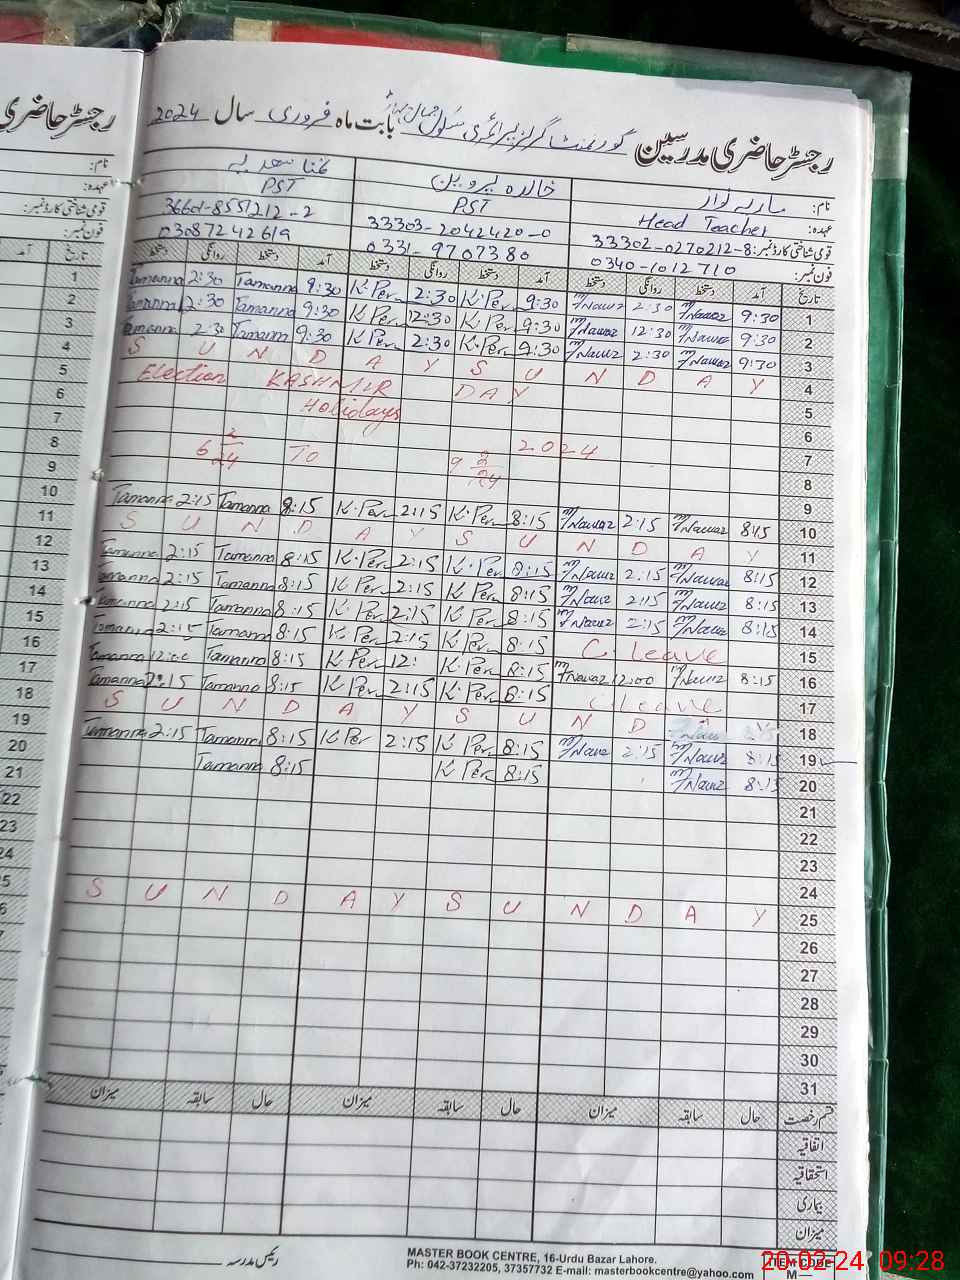 رجسٹر حاضری مدرسین گورنمنٹ گرلز پرائمری سکول جمال بابت ماہ فروری سال 2024
رجسٹر حاضری
نام: ماریہ نواز خالدہ پروین
عہدہ: Head Teacher PST PST
قومی شناختی کارڈ نمبر: 33302-0270212-8 33303-2042420-0 36601-8551212-2
فون نمبر: 0340-1012710 0331-9707380 03087242619
تاریخ آمد دستخط روانگی دستخط آمد دستخط روانگی دستخط آمد دستخط روانگی دستخط
1 9:30 Nawaz 2:30 Nawaz 9:30 K.Per 2:30 K Per 9:30 Tamanna 2:30 Tamanna
2 9:30 Nawaz 12:30 Nawaz 9:30 K.Per 12:30 K Per 9:30 Tamanna 2:30 Tamanna
3 9:30 Nawaz 2:30 Nawaz 9:30 K.Per 2:30 K Per 9:30 Tamanna 2:30 Tamanna
4 S U N D A Y S U N D A Y
5 Election KASHMIR DAY
6 Holidays
7 2024
8 6 2/24 TO 9 2/24
9
10 8:15 Nawaz 2:15 Nawaz 8:15 K.Per 2:15 K.Per 8:15 Tamanna 2:15 Tamanna
11 S U N D A Y S U N D A Y
12 8:15 Nawaz 2:15 Nawaz 8:15 K.Per 2:15 K.Per 8:15 Tamanna 2:15 Tamanna
13 8:15 Nawaz 2:15 Nawaz 8:15 K Per 2:15 K Per 8:15 Tamanna 2:15 Tamanna
14 8:15 Nawaz 2:15 Nawaz 8:15 K Per 2:15 K Per 8:15 Tamanna 2:15 Tamanna
15 C. leave 8:15 K Per 2:15 K Per 8:15 Tamanna 2:15 Tamanna
16 8:15 Nawaz 12:00 Nawaz 8:15 K.Per 12: K Per 8:15 Tamanna 12:00 Tamanna
17 C leave 8:15 K.Per 2:15 K Per 8:15 Tamanna 2:15 Tamanna
18 S U N D A Y S U N D
19 8:15 Nawaz 2:15 Nawaz 8:15 K Per 2:15 K Per 8:15 Tamanna 2:15 Tamanna
20 8:15 Nawaz 8:15 K Per 8:15 Tamanna
21
22
23
24
25 S U N D A Y S U N D A Y
26
27
28
29
30
31
قسم رخصت حال سابقہ میزان حال سابقہ میزان حال سابقہ میزان
اتفاقیہ
استحقاقیہ
بیماری
میزان
رئیس مدرسہ
MASTER BOOK CENTRE, 16-Urdu Bazar Lahore.
Ph: 042-37232205, 37357732 E-mail: masterbookcentre@yahoo.com
ITEM CODE
M—
20-02-24 09:28